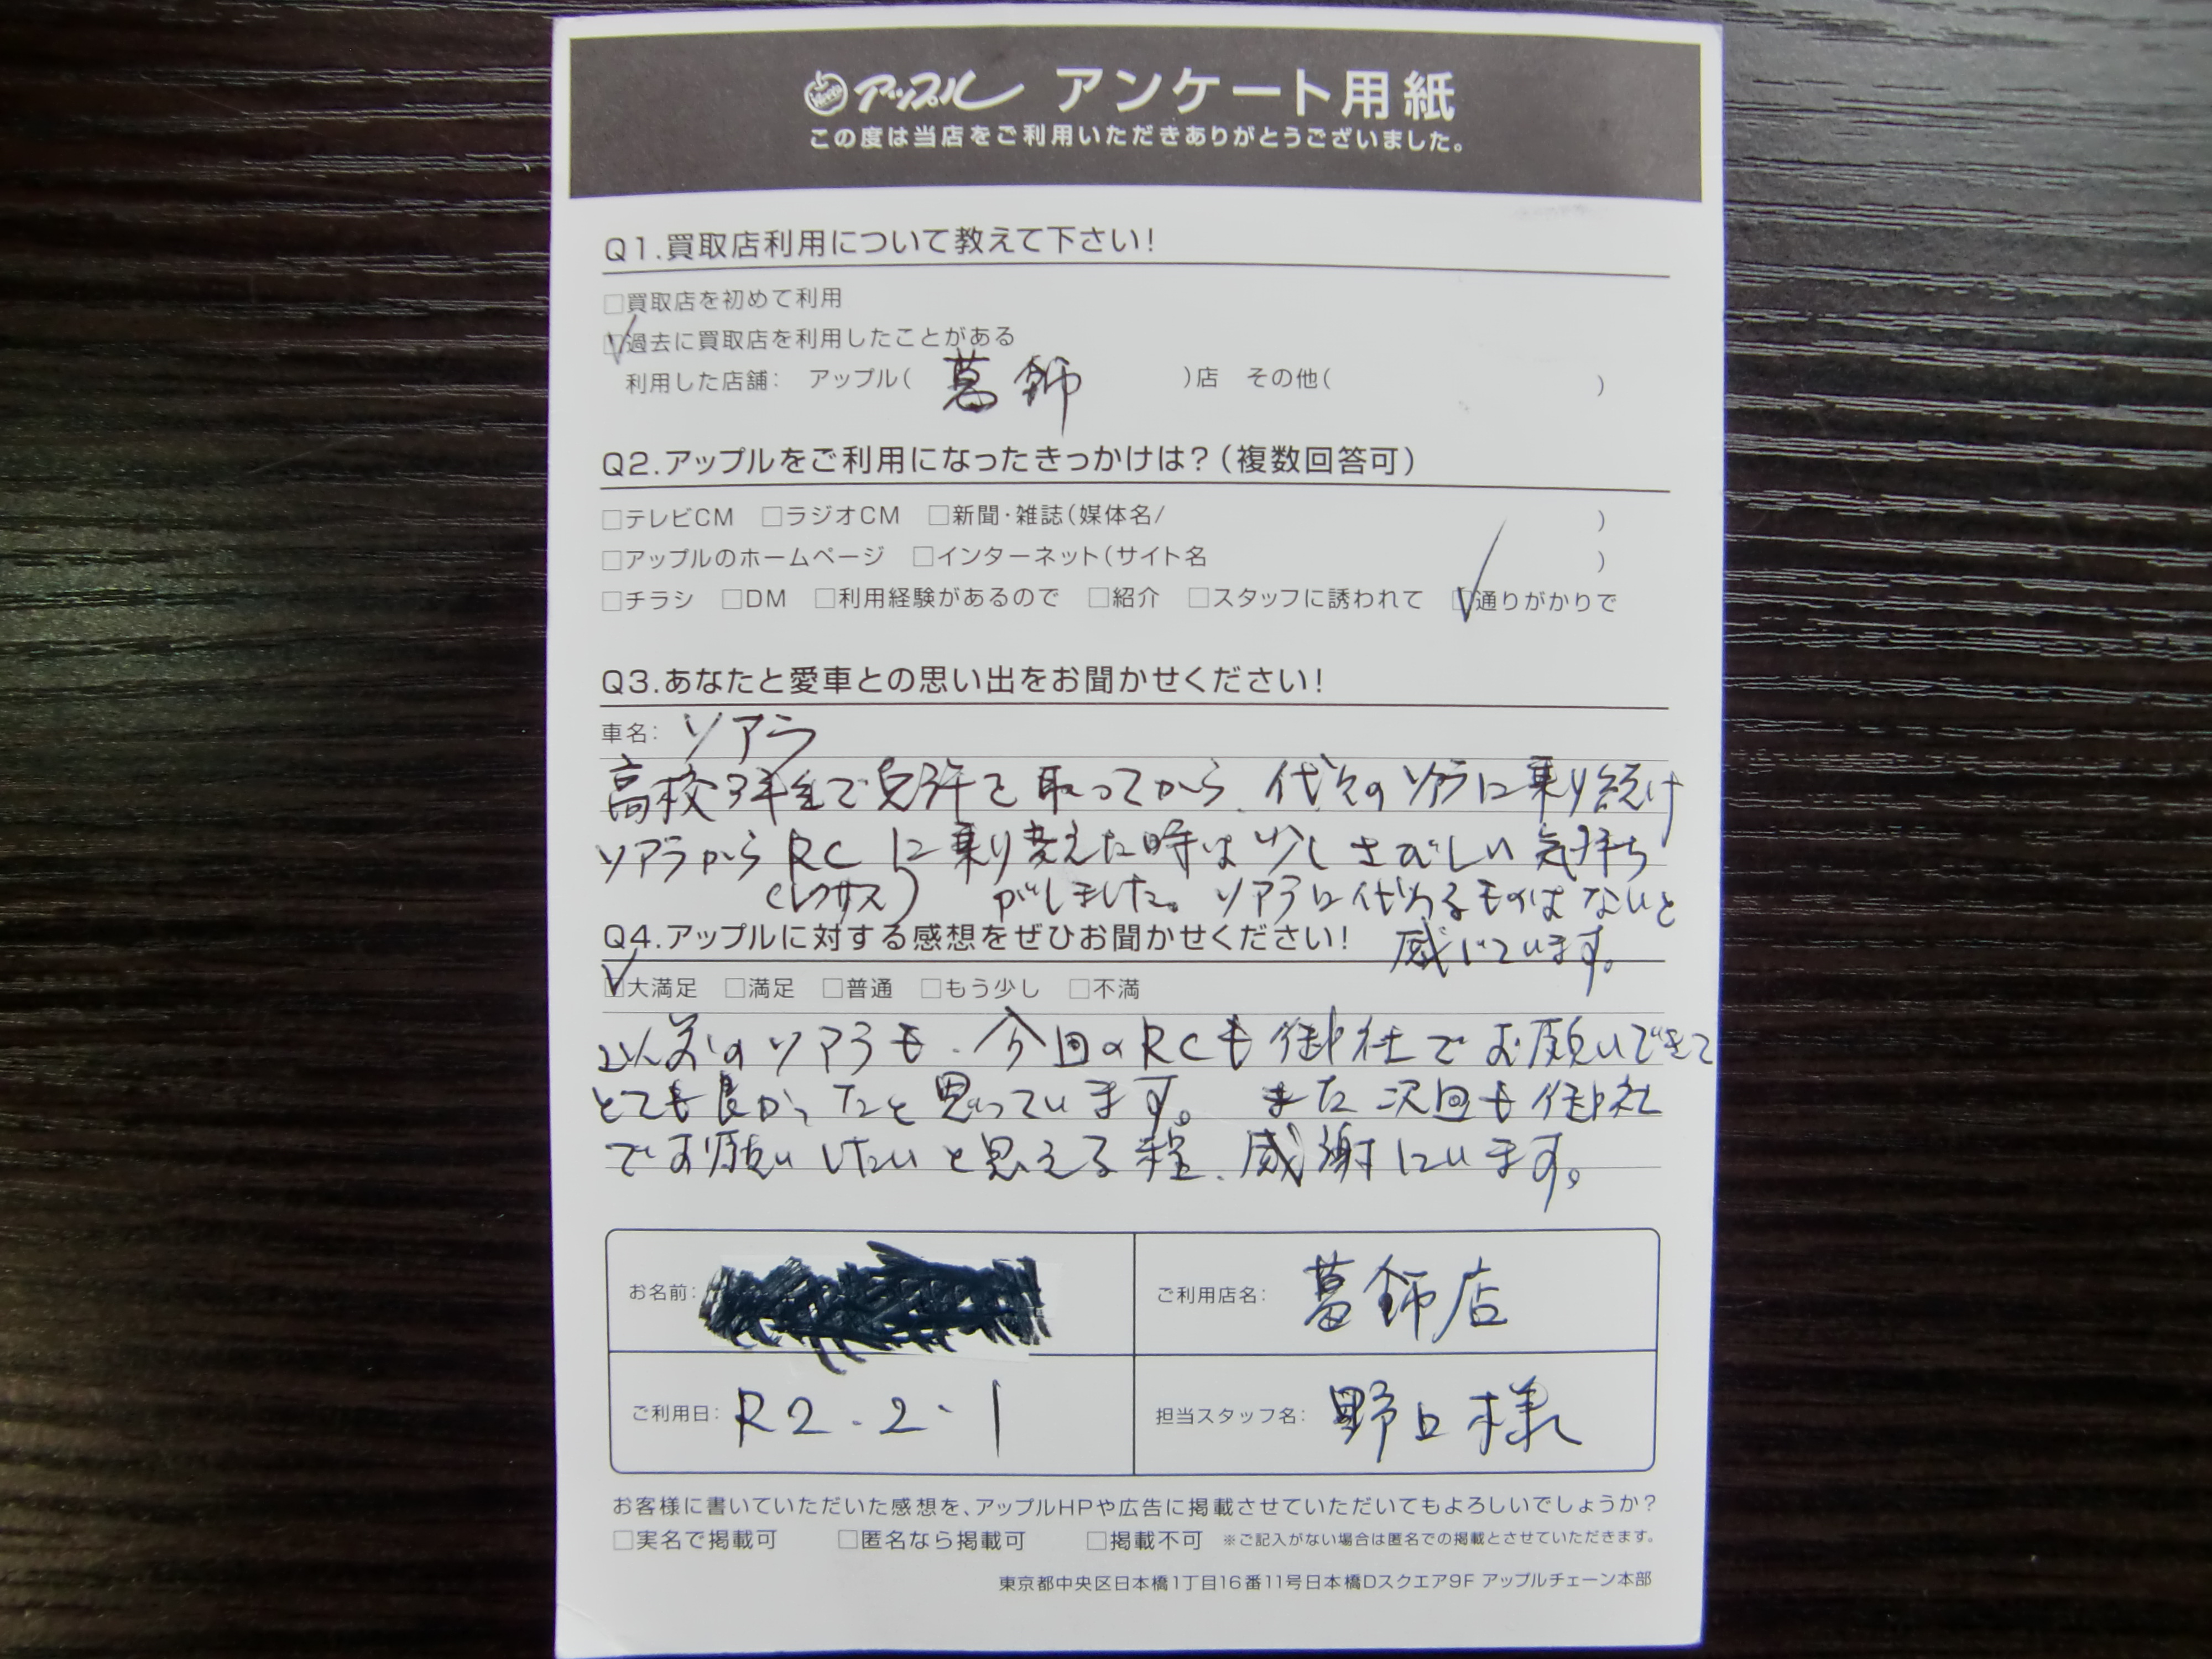 アップル アンケート用紙
この度は当店をご利用いただきありがとうございました。
Q1.買取店利用について教えて下さい!
□買取店を初めて利用
☑過去に買取店を利用したことがある
利用した店舗: アップル( 葛飾 )店 その他( )
Q2.アップルをご利用になったきっかけは?(複数回答可)
□テレビCM □ラジオCM □新聞・雑誌(媒体名/ )
□アップルのホームページ □インターネット(サイト名 )
□チラシ □DM □利用経験があるので □紹介 □スタッフに誘われて ☑通りがかりで
Q3.あなたと愛車との思い出をお聞かせください!
車名: ソアラ
高校3年生で免許を取ってから、代々のソアラに乗り続け
ソアラからRCに乗り変えた時は少しさびしい気持ち
(レクサス) がしました。ソアラに代わるものはないと
感じています。
Q4.アップルに対する感想をぜひお聞かせください!
☑大満足 □満足 □普通 □もう少し □不満
以前のソアラも、今回のRCも御社でお願いできて
とても良かったと思っています。また次回も御社
でお願いしたいと思える程、感謝しています。
お名前:
ご利用店名: 葛飾店
ご利用日: R2.2.1
担当スタッフ名: 野口様
お客様に書いていただいた感想を、アップルHPや広告に掲載させていただいてもよろしいでしょうか?
□実名で掲載可 □匿名なら掲載可 □掲載不可 ※ご記入がない場合は匿名での掲載とさせていただきます。
東京都中央区日本橋1丁目16番11号日本橋Dスクエア9F アップルチェーン本部